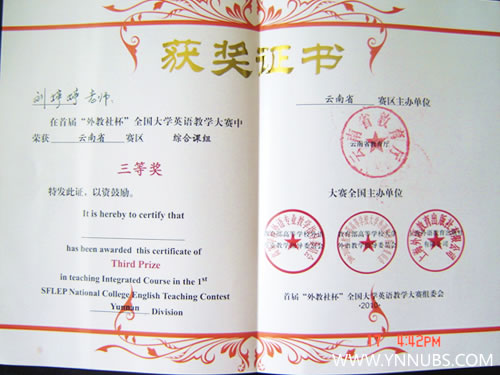 获奖证书
老师:
在首届“外教社杯”全国大学英语教学大赛中
荣获 云南省 赛区 综合课组
三等奖
特发此证,以资鼓励。
It is hereby to certify that
has been awarded this certificate of
Third Prize
in teaching Integrated Course in the 1st
SFLEP National College English Teaching Contest
Yunnan Division
云南省 赛区主办单位
云南省教育厅
云南省教育厅
大赛全国主办单位
首届“外教社杯”全国大学英语教学大赛组委会
4:42PM
WWW.YNNUBS.COM